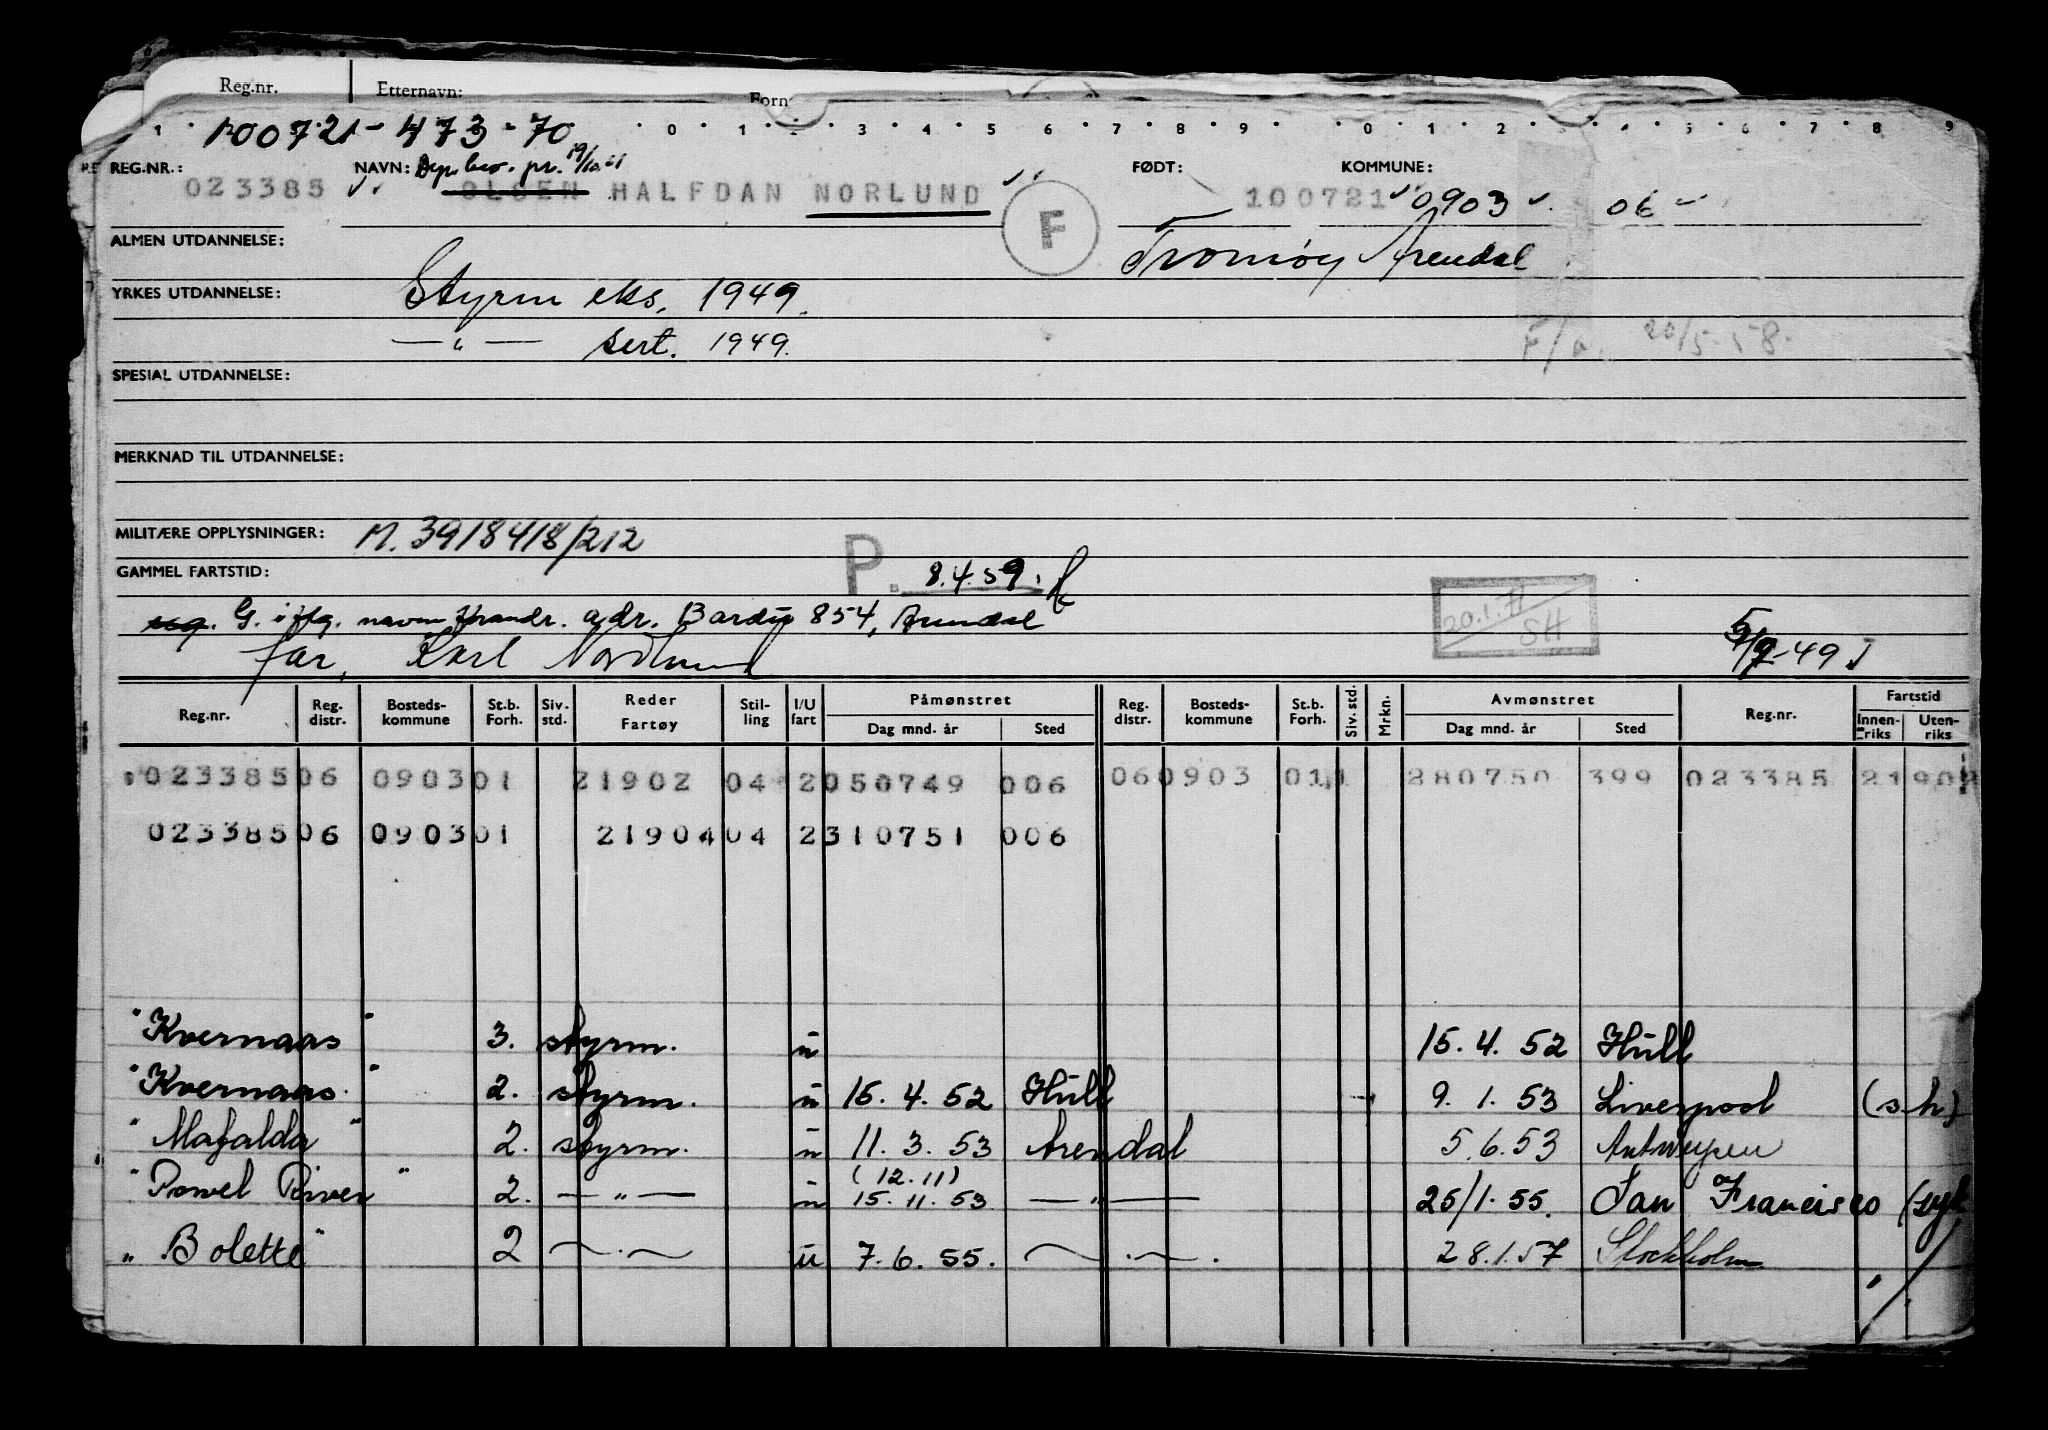 Reg.nr. Etternavn: Forn
100721-473-70
1 0 1 2 3 4 5 6 7 8 9 0 1 2 4 5 6 7 8 9
REG.NR.: NAVN: pr. 19/10 61 FØDT: KOMMUNE:
023385 OLSEN HALFDAN NORLUND F 100721 0903 06
ALMEN UTDANNELSE: Tromøy Arendal
YRKES UTDANNELSE: Styrm eks. 1949.
— " — sert. 1949. F/a. 20/5-58.
SPESIAL UTDANNELSE:
MERKNAD TIL UTDANNELSE:
MILITÆRE OPPLYSNINGER: M. 3918418/212
GAMMEL FARTSTID: P. 8.4.59.
G. iflg. navn forandr. adr. Bardu 854, Arendal 20.1.71 SH
far, Karl Nordlund 5/9-49 J
Reg.nr. Reg. distr. Bosteds-kommune St.b. Forh. Siv. std. Reder Fartøy Stil-ling I/U fart Påmønstret Dag mnd. år Sted Reg. distr. Bosteds-kommune St.b. Forh. Siv. std. Mrkn. Avmønstret Dag mnd. år Sted Reg.nr. Fartstid Innen-riks Uten-riks
023385 06 0903 01 21902 04 2 050749 006 06 0903 01 1 280750 399 023385 21 902
023385 06 0903 01 21904 04 2 310751 006
"Kvernaas" 3. styrm. u 15.4.52 Hull
"Kvernaas" 2. styrm. u 15.4.52 Hull 9.1.53 Liverpool (s h)
"Mafalda" 2. styrm. u 11.3.53 Arendal 5.6.53 Antwerpen
(12.11)
"Powel River" 2. — " — u 15.11.53 — " — 25/1.55. San Francisco (syk
"Bolette" 2 — " — u 7.6.55. — " — 28.1.57 Stockholm